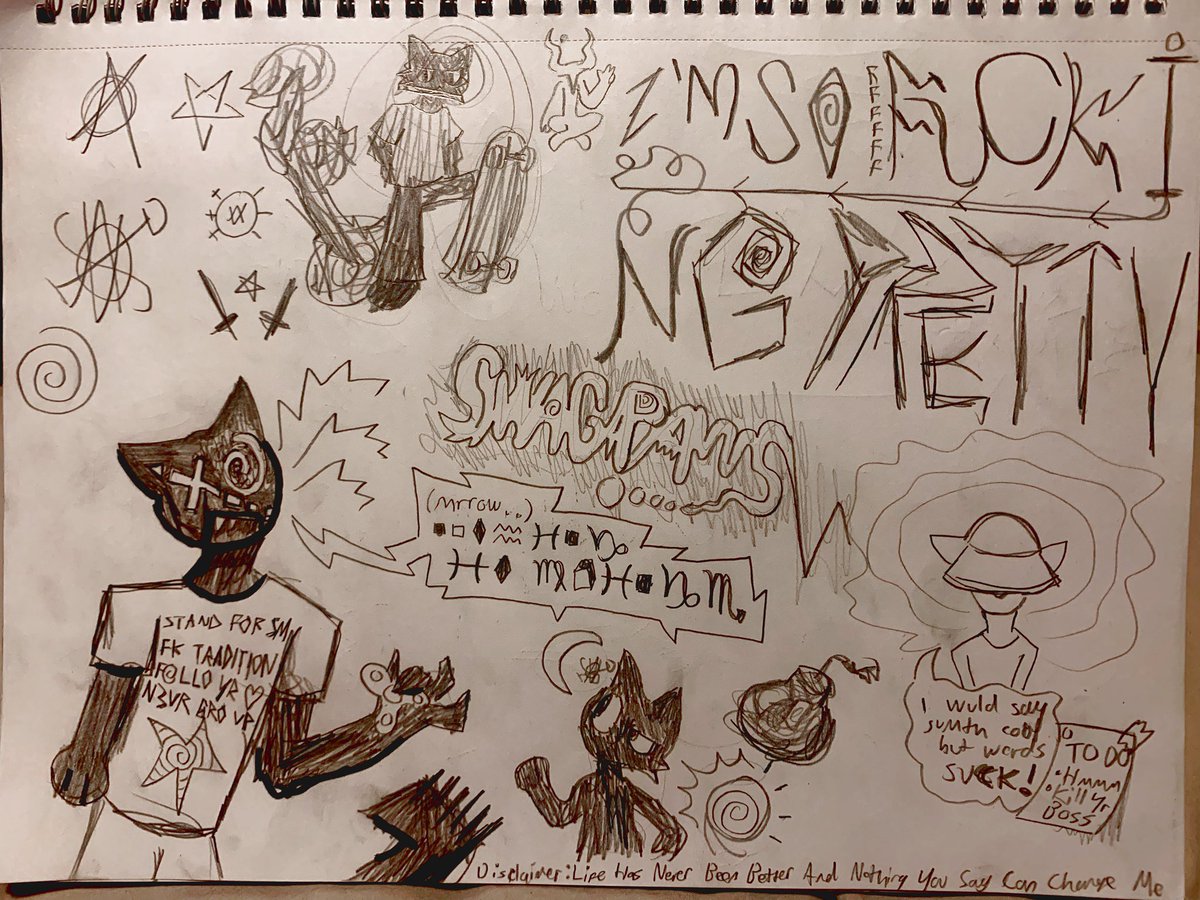 I'M SO FUCKI
RRRRRRR
NG PRETTY
(Mrrow...)
STAND FOR SM
FK TRADITION
F@LLO YR ♡
N3VR GRO UP
I wuld say
sumth cool
but words
SUCK!
TO DO
• Hmmm
• Kill Yr
BOSS
Disclaimer: Life Has Never Been Better And Nothing You Say Can Change Me